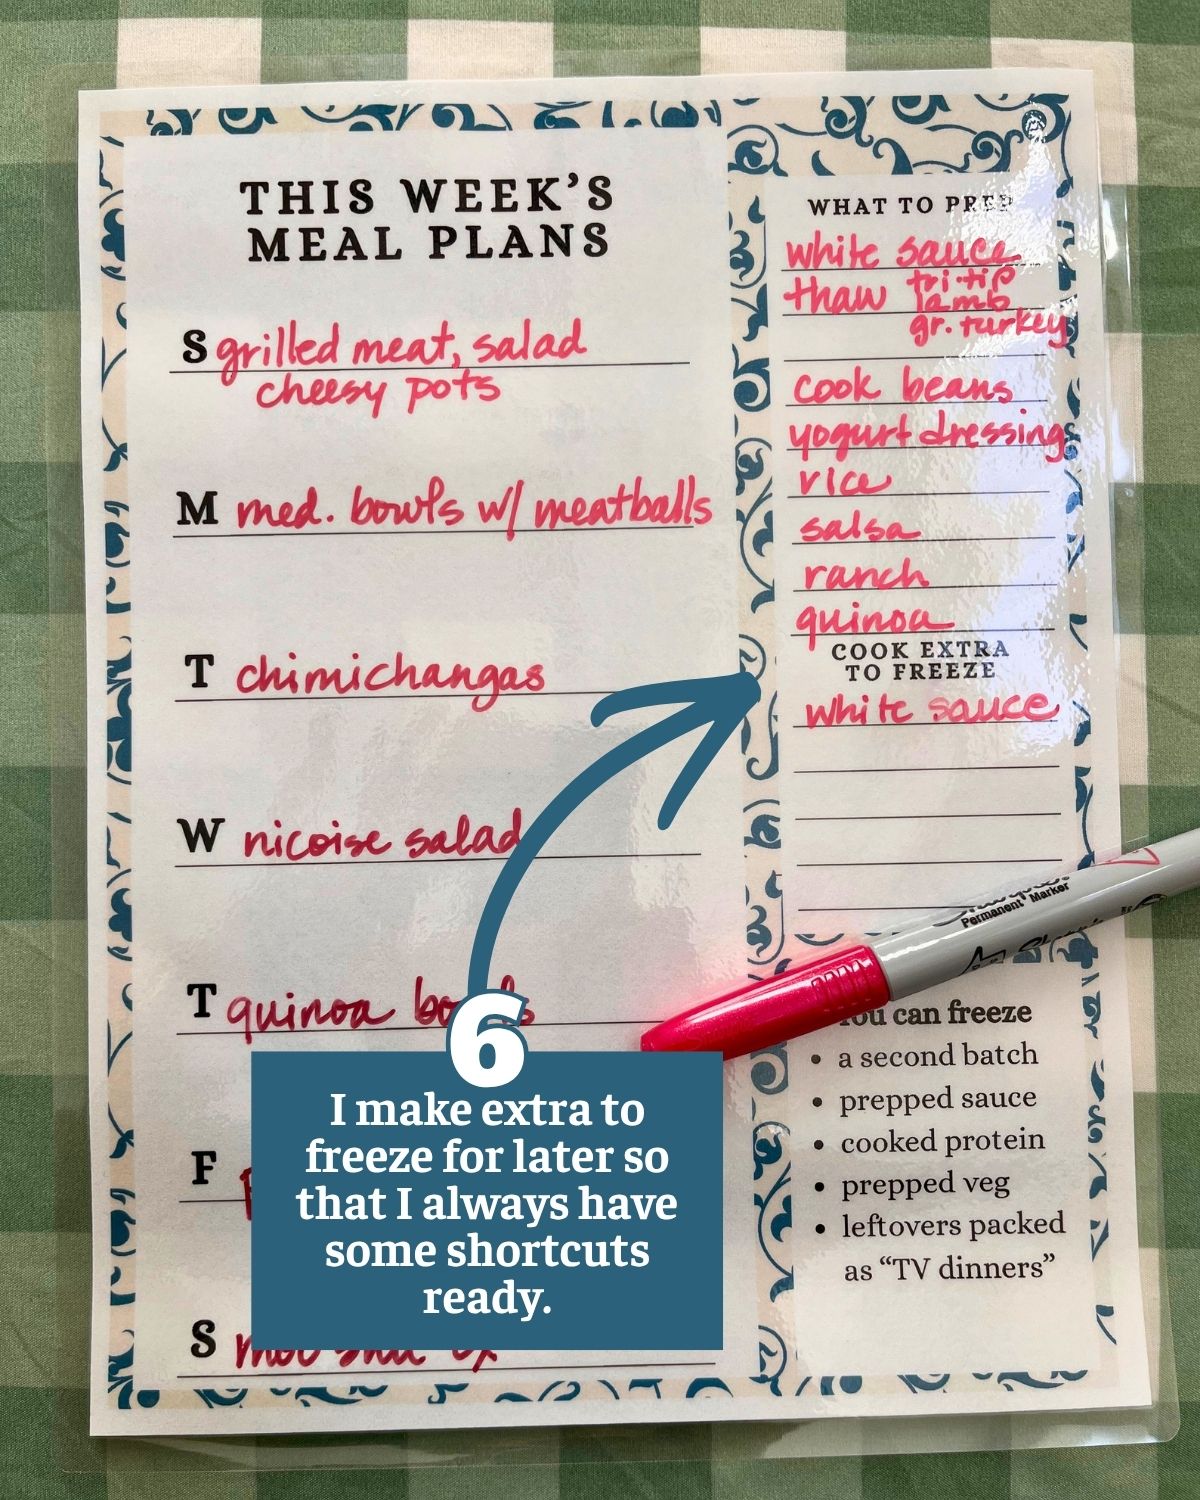 THIS WEEK'S
MEAL PLANS
S grilled meat, salad
cheesy pots
M med. bowls w/ meatballs
T chimichangas
W nicoise salad
T quinoa bowls
F
S moo shu
WHAT TO PREP
white sauce
thaw tri-tip
lamb
gr. turkey
cook beans
yogurt dressing
rice
salsa
ranch
quinoa
COOK EXTRA
TO FREEZE
white sauce
Sharpie
Permanent Marker
You can freeze
• a second batch
• prepped sauce
• cooked protein
• prepped veg
• leftovers packed
as “TV dinners”
6
I make extra to
freeze for later so
that I always have
some shortcuts
ready.